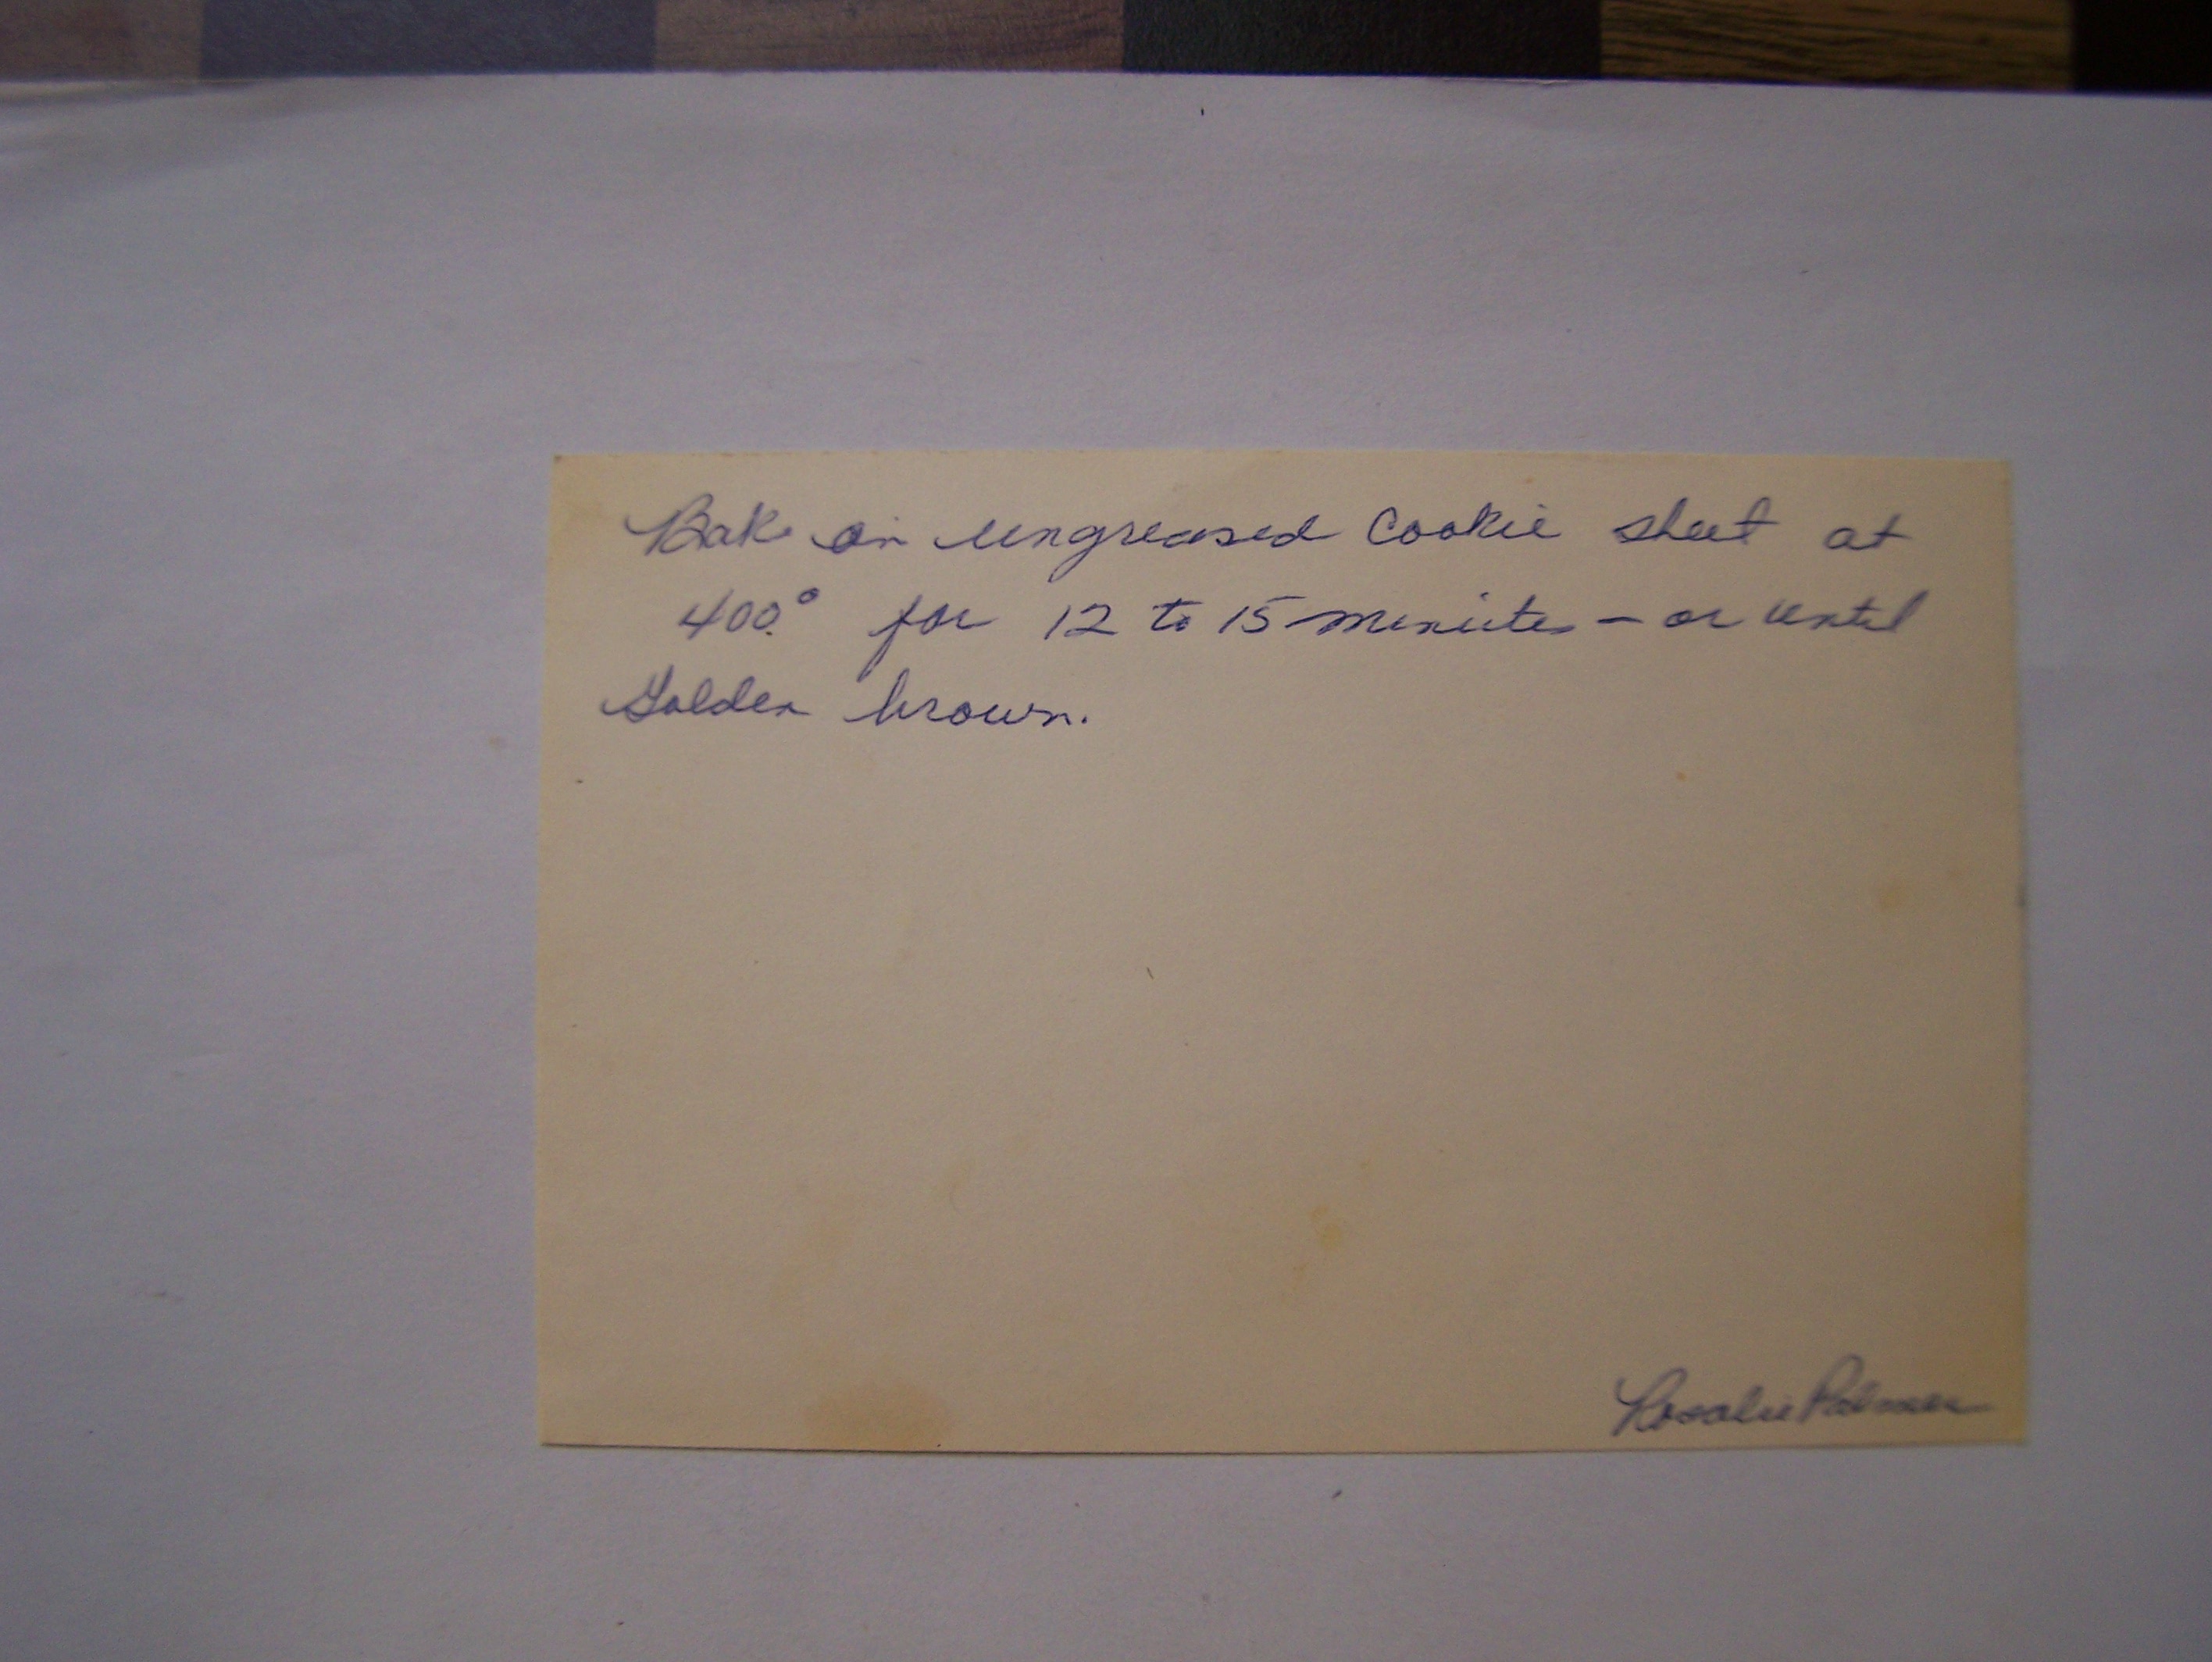 Bake on ungreased cookie sheet at
400° for 12 to 15 minutes - or until
Golden brown.
Rosalie Palmer